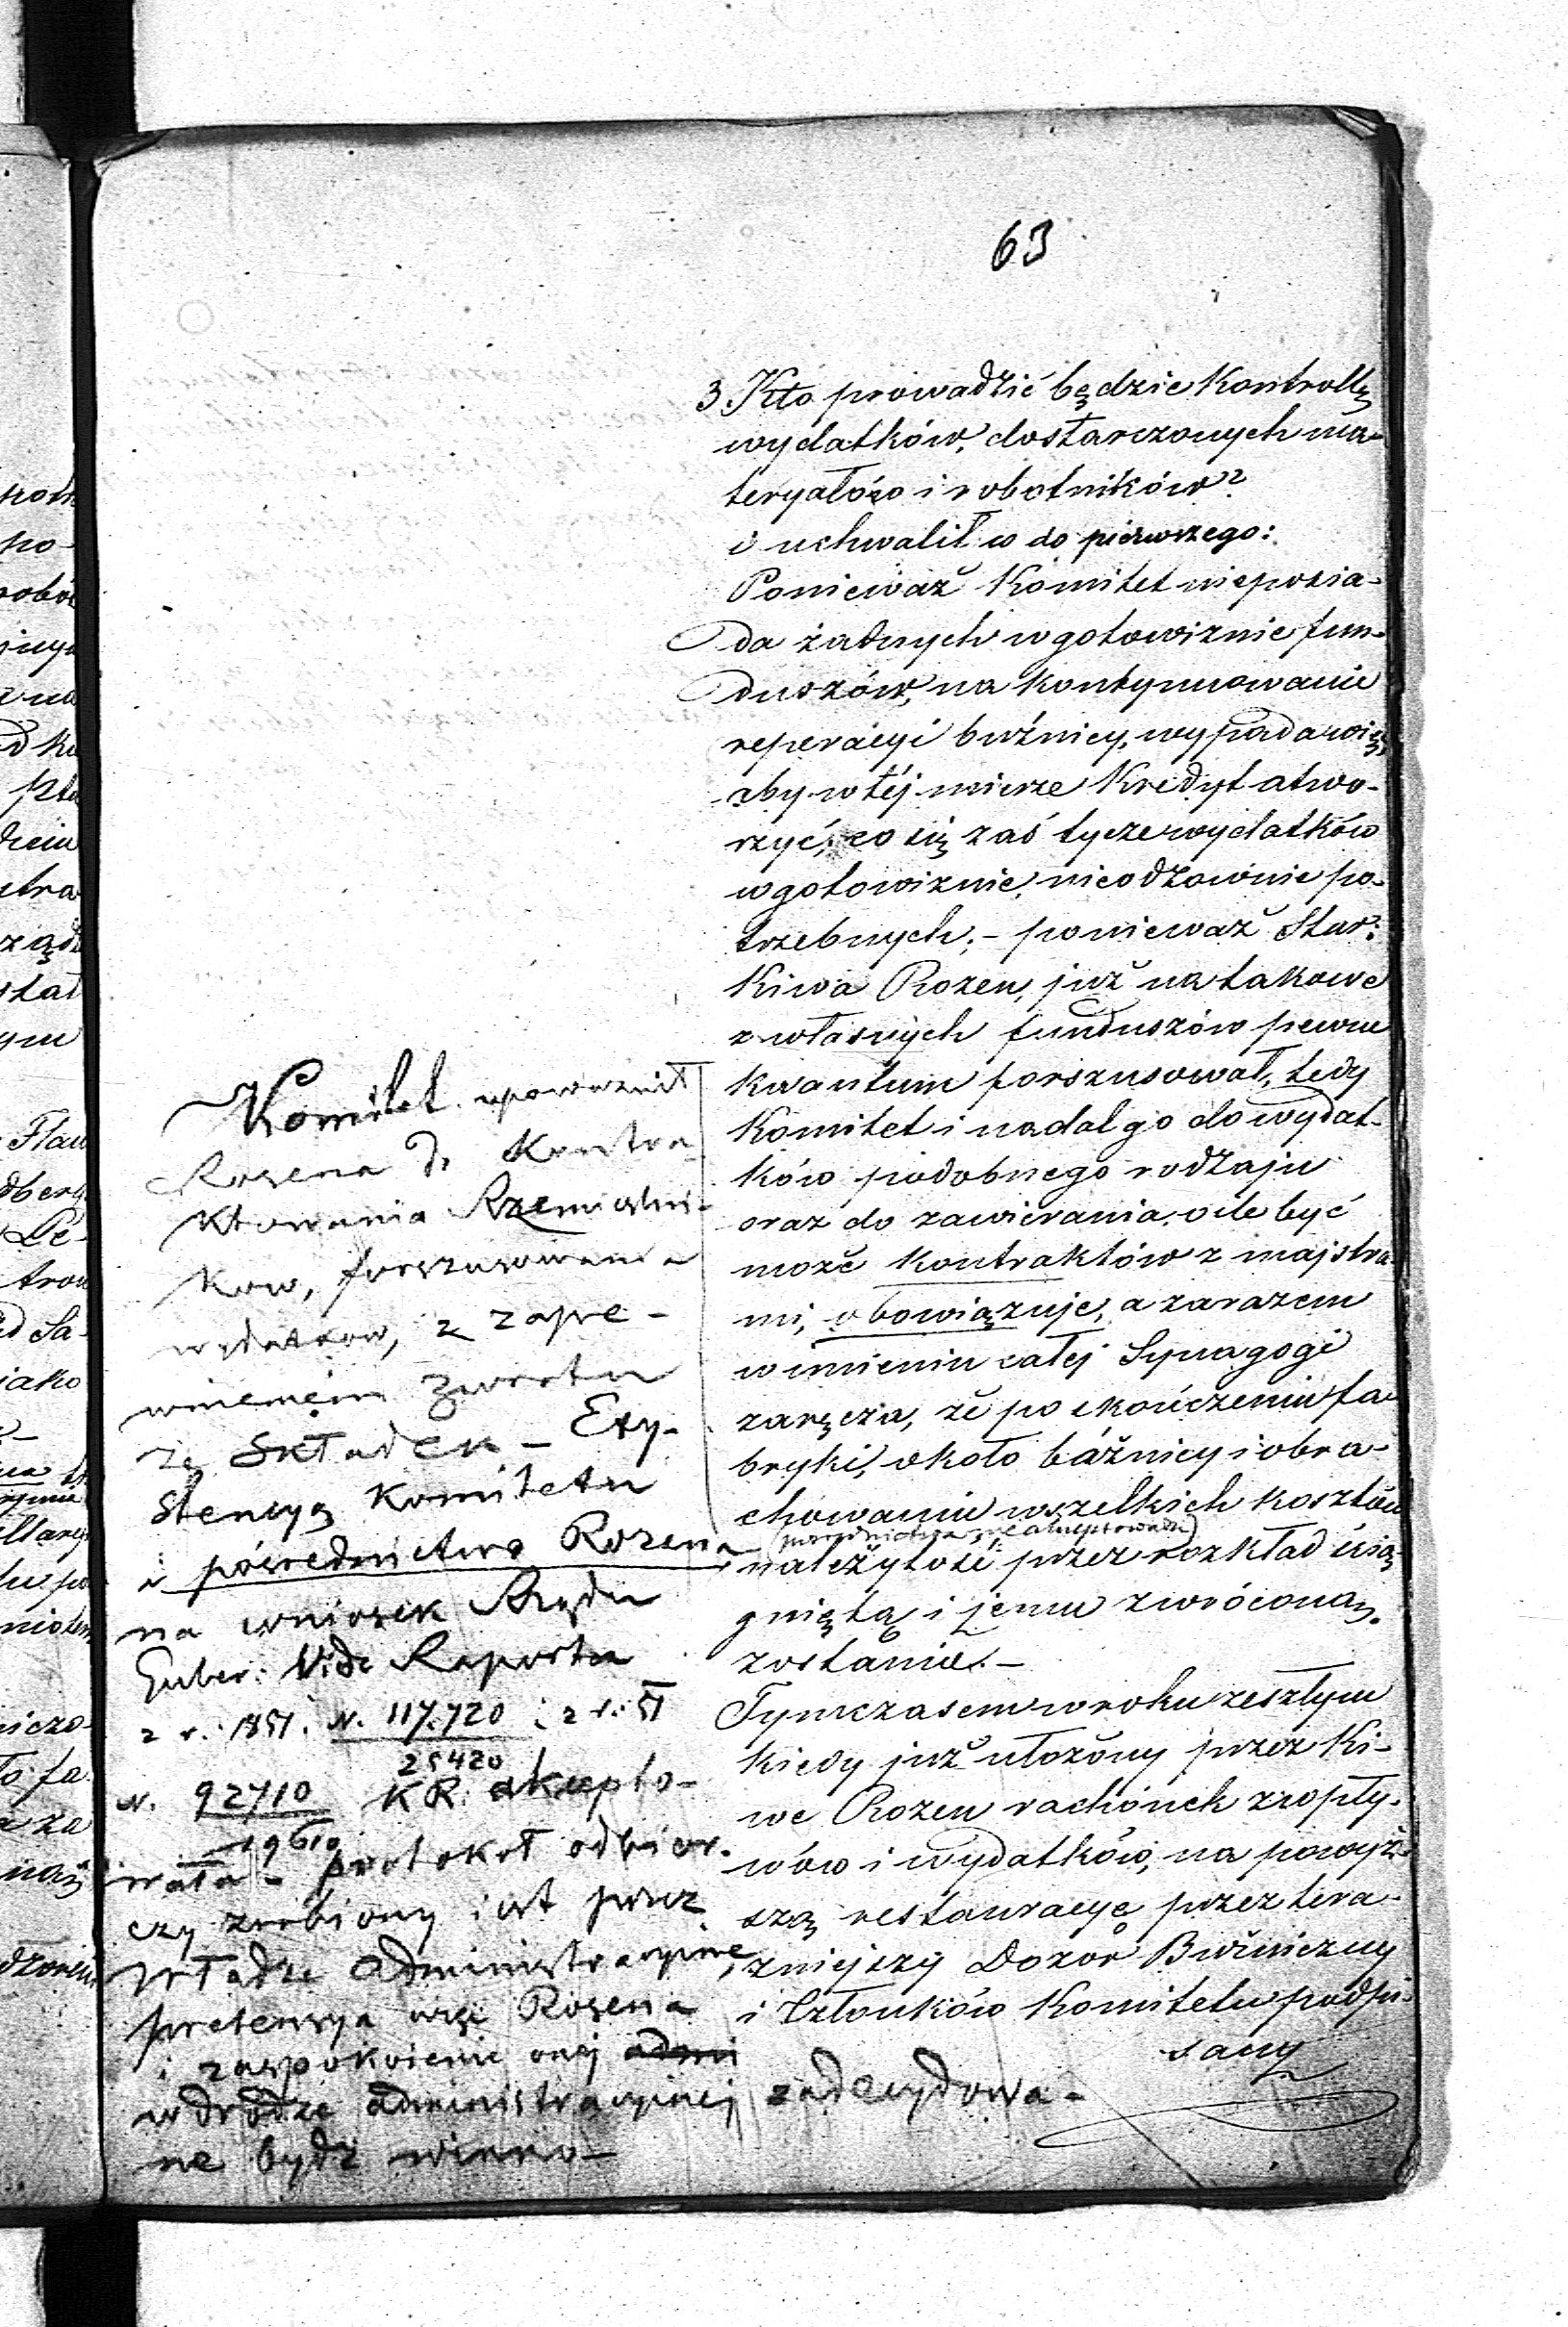 63
3. Kto prowadzić będzie Kontrollę
wydatków, dostarczonych ma-
teryałów i robotników?
i uchwalił w do pierwszego:
Ponieważ Komitet nieposia-
da żadnych w gotowiznie fun-
duszów, na kontynuowanie
reperacyi bużnicy, wypada więc
aby w téj mierze Kredyt otwo-
rzyć; co się zaś tycze wydatków
w gotowiznie, nieodzownie po-
trzebnych; - ponieważ Star:
Kiwa Rozen, już na takowe
z własnych funduszów pewne
kwantum forszusował, tedy
Komitet i nadal go do wydat-
ków podobnego rodzaju
oraz do zawierania, o ile być
może kontraktów z majstra-
mi, obowiązuje, a zarazem
w imieniu całej Synagogi
zaręcza, że po skończeniu fa-
bryki, około bóżnicy i obra-
chowaniu wszelkich kosztów
należytość przez rozkład ścią-
gniętą i jemu zwróconą
zostanie. -
Tymczasem w roku zeszłym
kiedy już ułożony przez Ki-
we Rozen rachónek z wpły-
wów i wydatków, na powyż-
szą restauracyę przez tera-
zniejszy Dozór Bużniczny
i Członków Komitetu podpi-
sany
Komitet upoważnił
Rosena do Kontra-
ktowania Rzemieślni-
kow, forszusowania
wydatkow, z zape-
wnieniem zwrotu
ze Składek - Exy-
stencyą Komitetu
i pośrednictwo Rozena
na wniosek Rządu
Guber: Vide Raporta
z r. 1851. N. 117.720 i z r. 51
25420
N. 92710 KR. akcepto-
19610
wała - protokoł odbior-
czy zrobiony jest przez
Władze Administracyine,
pretensya więc Rosena
i zaspokoienie onéj admi
w drodze administracyinej zadecydowa-
ne bydź winno -